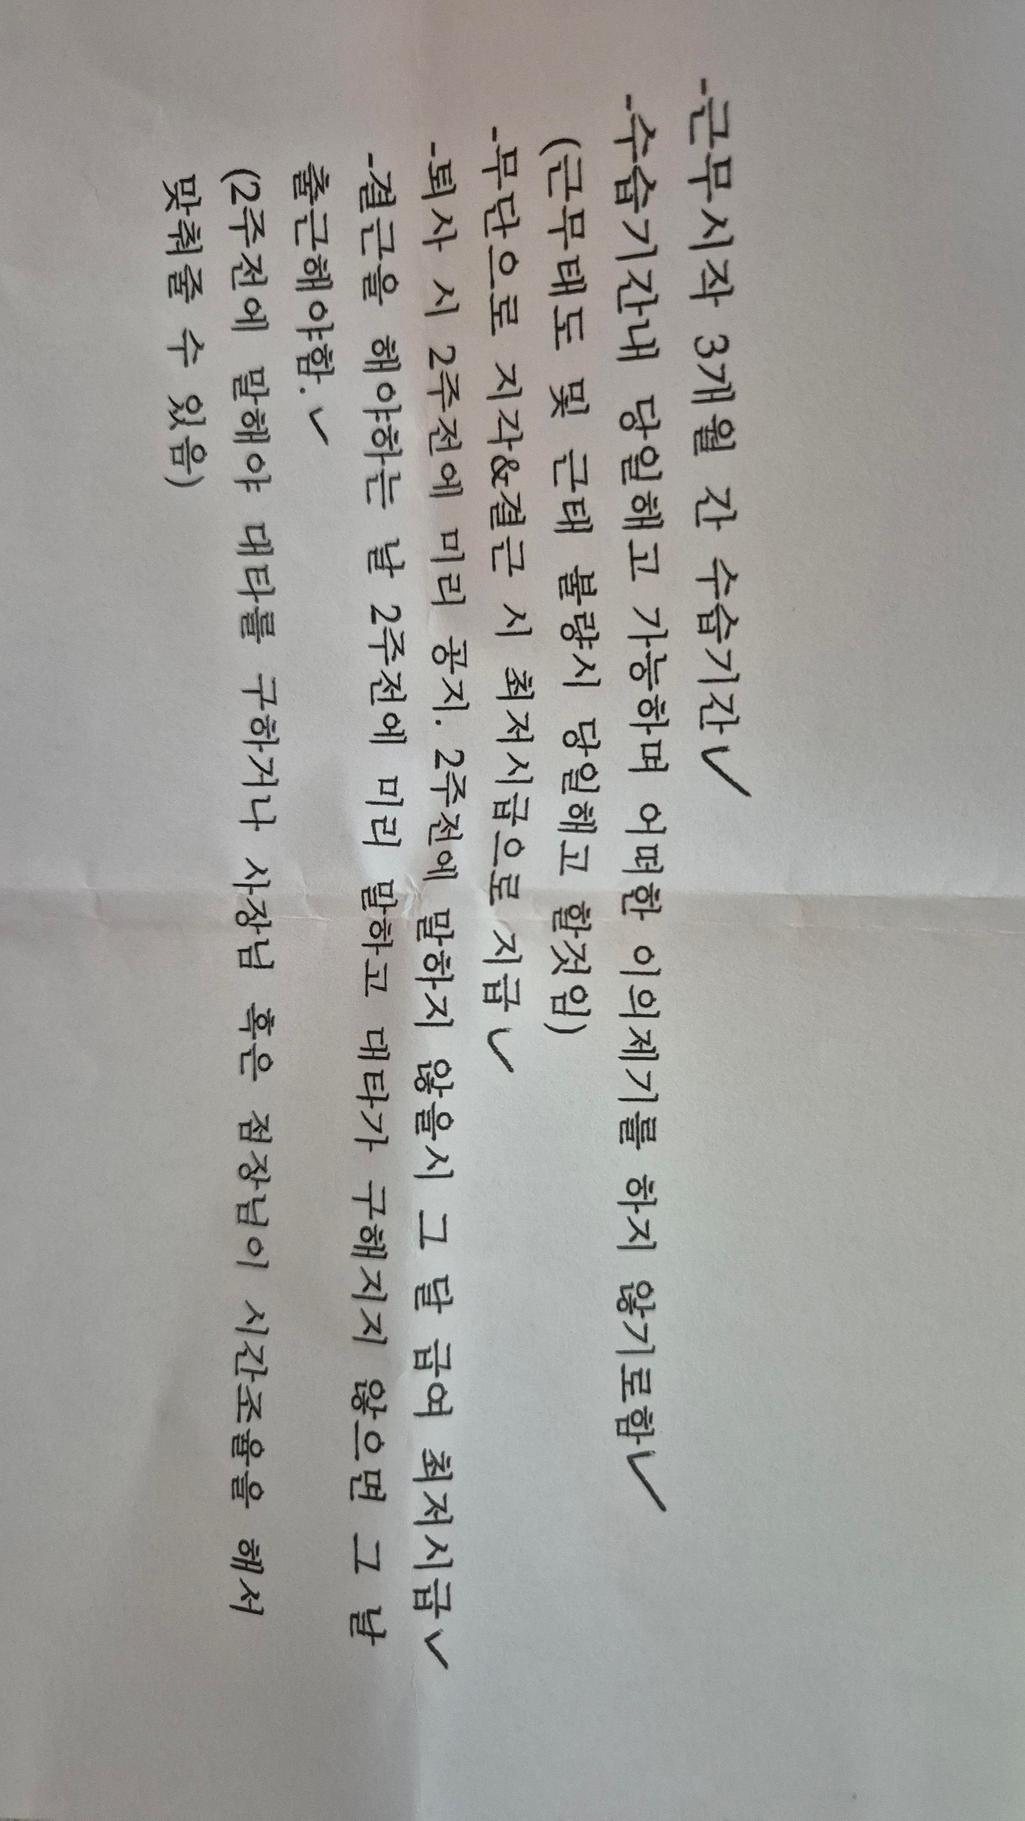 -근무시작 3개월 간 수습기간✓
-수습기간내 당일해고 가능하며 어떠한 이의제기를 하지 않기로함✓
(근무태도 및 근태 불량시 당일해고 할것임)
-무단으로 지각&결근 시 최저시급으로 지급✓
-퇴사 시 2주전에 미리 공지. 2주전에 말하지 않을시 그 달 급여 최저시급✓
-결근을 해야하는 날 2주전에 미리 말하고 대타가 구해지지 않으면 그 날
출근해야함.✓
(2주전에 말해야 대타를 구하거나 사장님 혹은 점장님이 시간조율을 해서
맞춰줄 수 있음)